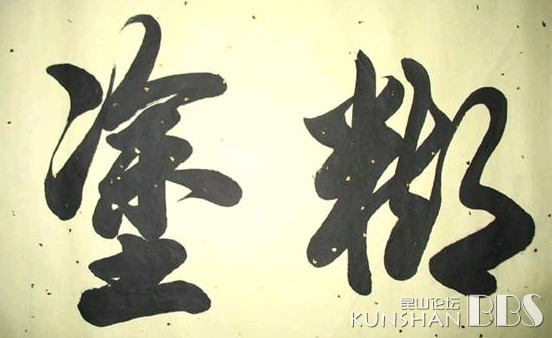 糊塗
昆山论坛
KUNSHAN BBS